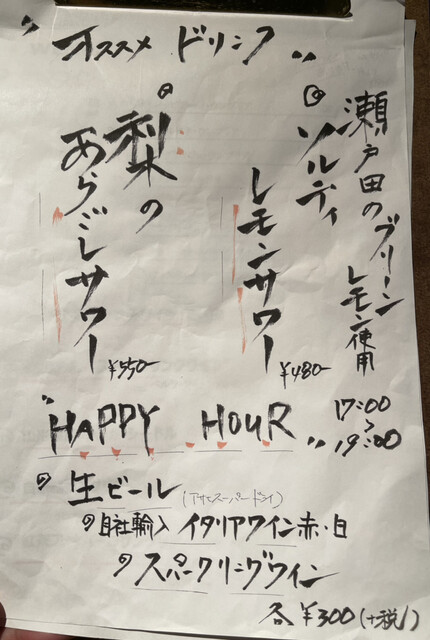 "オススメ ドリンク"
瀬戸田のグリーン
レモン使用
◎ソルティ
レモンサワー
¥480-
◎梨の
あらごしサワー
¥550-
"HAPPY HOUR"
17:00
~
19:00
◎生ビール(アサヒスーパードライ)
◎自社輸入 イタリアワイン赤・白
◎スパークリングワイン
各¥300(+税)